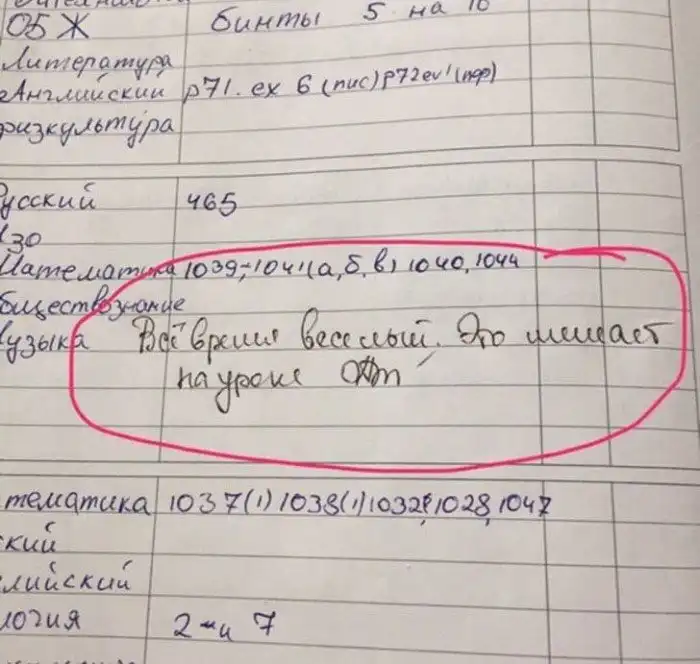 ОБЖ бинты 5 на 10
Литература
Английский p71. ex 6 (пис) p72 ex 1 (пер)
физкультура
усский 465
ИЗО
Математика 1039, 1041 (а, б, в) 1040, 1044
бществознание
узыка Всё время веселый. Это мешает
на уроке
тематика 1037(1) 1038(1) 1032, 1028, 1047
ский
лийский
логия 2 и 7